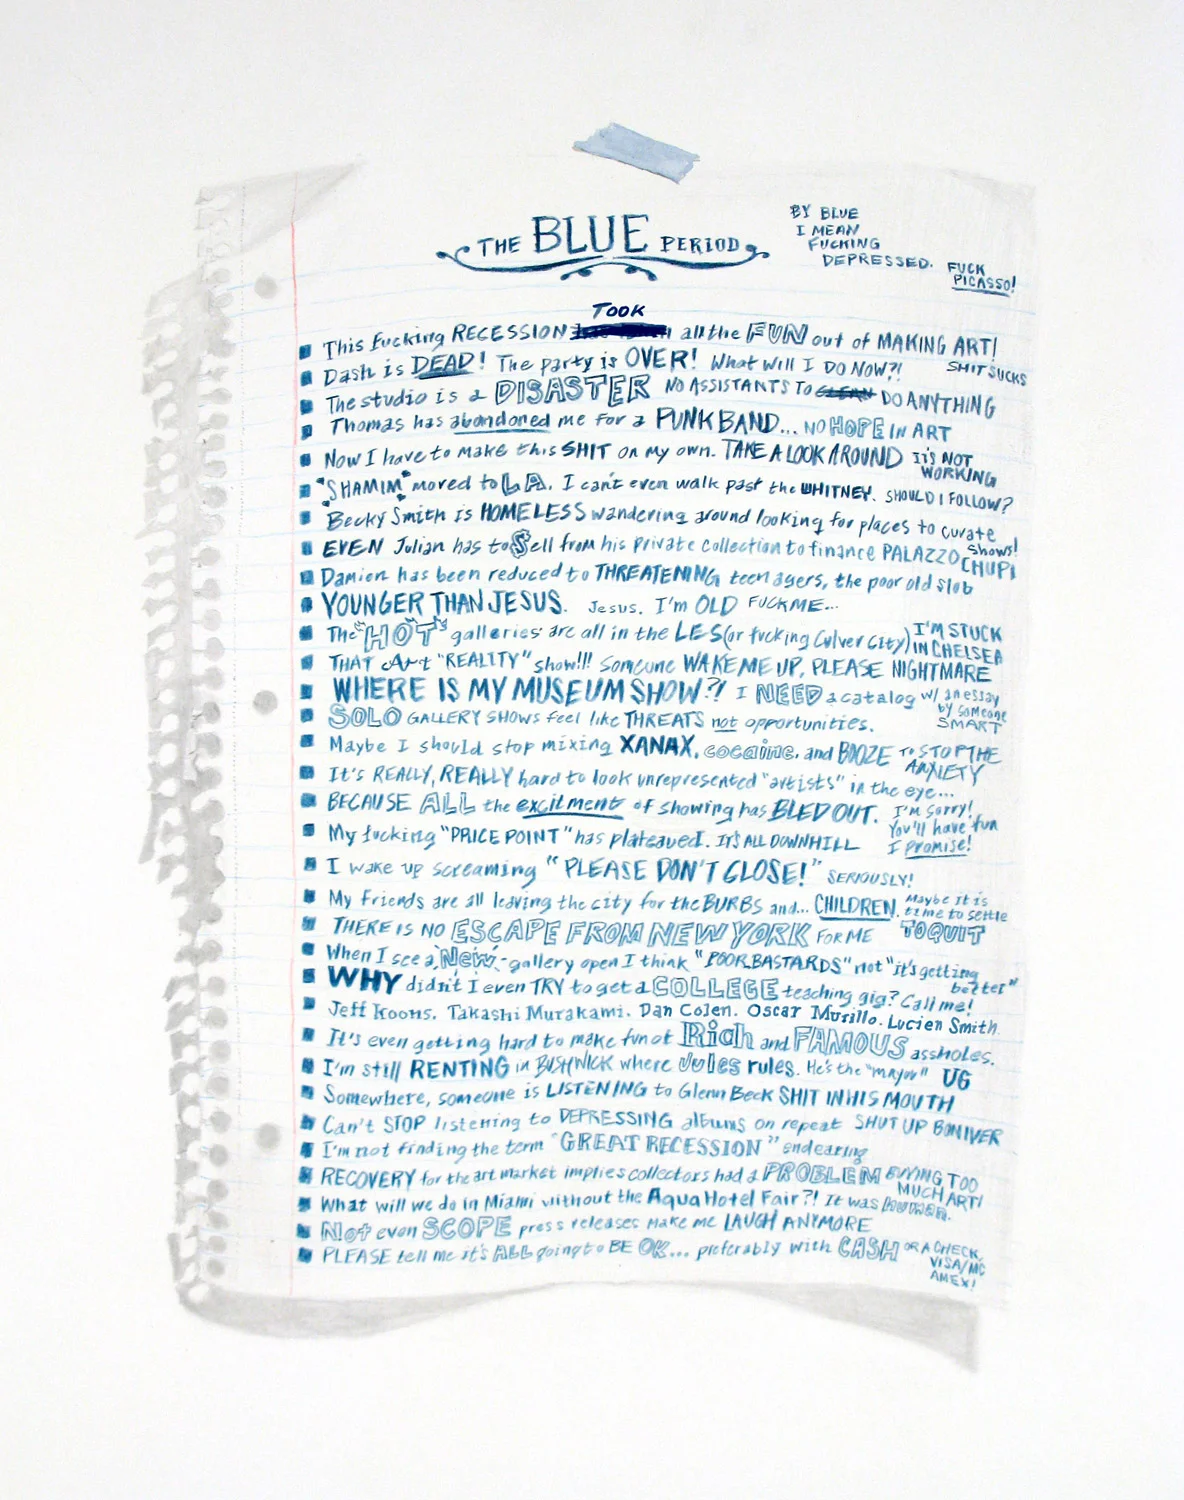 THE BLUE PERIOD
BY BLUE
I MEAN
FUCKING
DEPRESSED.
FUCK
PICASSO!
TOOK
This fucking RECESSION all the FUN out of MAKING ART!
SHIT SUCKS
Dash is DEAD! The party is OVER! What will I DO NOW?!
The studio is a DISASTER NO ASSISTANTS TO CLEAN DO ANYTHING
Thomas has abandoned me for a PUNK BAND... NO HOPE IN ART
Now I have to make this SHIT on my own. TAKE A LOOK AROUND IT'S NOT
WORKING
"SHAMIM" moved to LA. I can't even walk past the WHITNEY. SHOULD I FOLLOW?
Becky Smith is HOMELESS wandering around looking for places to curate
shows!
EVEN Julian has to $ell from his private collection to finance PALAZZO
CHUPI
Damien has been reduced to THREATENING teenagers, the poor old slob
YOUNGER THAN JESUS. Jesus. I'm OLD FUCK ME...
The "HOT" galleries are all in the LES (or fucking Culver City) I'M STUCK
IN CHELSEA
THAT Art "REALITY" show!!! Someone WAKE ME UP, PLEASE NIGHTMARE
WHERE IS MY MUSEUM SHOW?! I NEED a catalog w/ an essay
by someone
SMART
SOLO GALLERY SHOWS feel like THREATS not opportunities.
Maybe I should stop mixing XANAX, cocaine, and BOOZE TO STOP THE
ANXIETY
It's REALLY, REALLY hard to look unrepresented "artists" in the eye...
I'm sorry!
You'll have fun
I promise!
BECAUSE ALL the excitment of showing has BLED OUT.
My fucking "PRICE POINT" has plateaued. IT'S ALL DOWNHILL
I wake up screaming "PLEASE DON'T CLOSE!" SERIOUSLY!
My friends are all leaving the city for the BURBS and... CHILDREN. Maybe it is
time to settle
THERE IS NO ESCAPE FROM NEW YORK FOR ME TO QUIT
When I see a "New" gallery open I think "POOR BASTARDS" not "it's getting
better"
WHY didn't I even TRY to get a COLLEGE teaching gig? Call me!
Jeff Koons. Takashi Murakami. Dan Colen. Oscar Murillo. Lucien Smith.
It's even getting hard to make fun of Rich and FAMOUS assholes.
I'm still RENTING in BUSHWICK where Jules rules. He's the "mayor" UG
Somewhere, someone is LISTENING to Glenn Beck SHIT IN HIS MOUTH
Can't STOP listening to DEPRESSING albums on repeat SHUT UP BON IVER
I'm not finding the term "GREAT RECESSION" endearing
RECOVERY for the art market implies collectors had a PROBLEM BUYING TOO
MUCH ART!
What will we do in Miami without the Aqua Hotel Fair?! It was
Not even SCOPE press releases make me LAUGH ANYMORE
PLEASE tell me it's ALL going to BE OK... preferably with CASH OR A CHECK,
VISA/MC
AMEX!